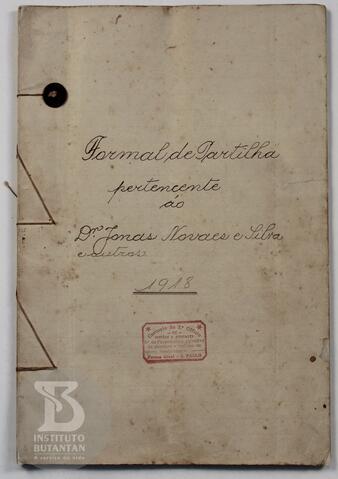 Formal de Partilha
pertencente
áo
Dr. Jonas Novaes e Silva
e outros
1918
Cartorio do 2º Officio
Forum Civel - S. PAULO
INSTITUTO
BUTANTAN
A serviço da vida